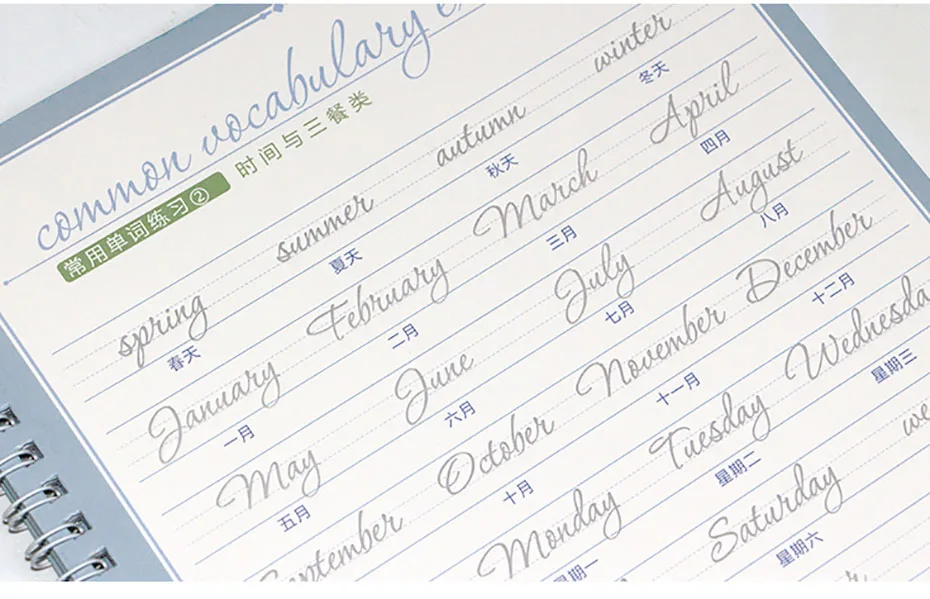 common vocabulary
常用单词练习② 时间与三餐类
spring summer autumn winter
春天 夏天 秋天 冬天
January February March April
一月 二月 三月 四月
May June July August
五月 六月 七月 八月
September October November December
十月 十一月 十二月
Monday Tuesday Wednesday
星期一 星期二 星期三
Saturday
星期六